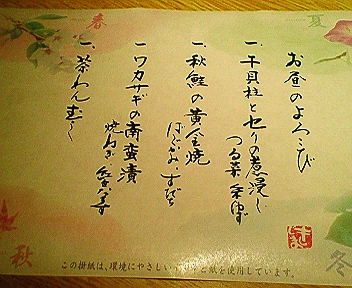 春
夏
お昼のよろこび
一、干貝柱とセリの煮浸し
つる菜 糸ゆず
一、秋鮭の黄金焼
はじかみ、すだち
一 ワカサギの南蛮漬
焼ねぎ 糸
一、茶わんむし
秋
冬
この掛紙は、環境にやさしい
紙を使用しています。